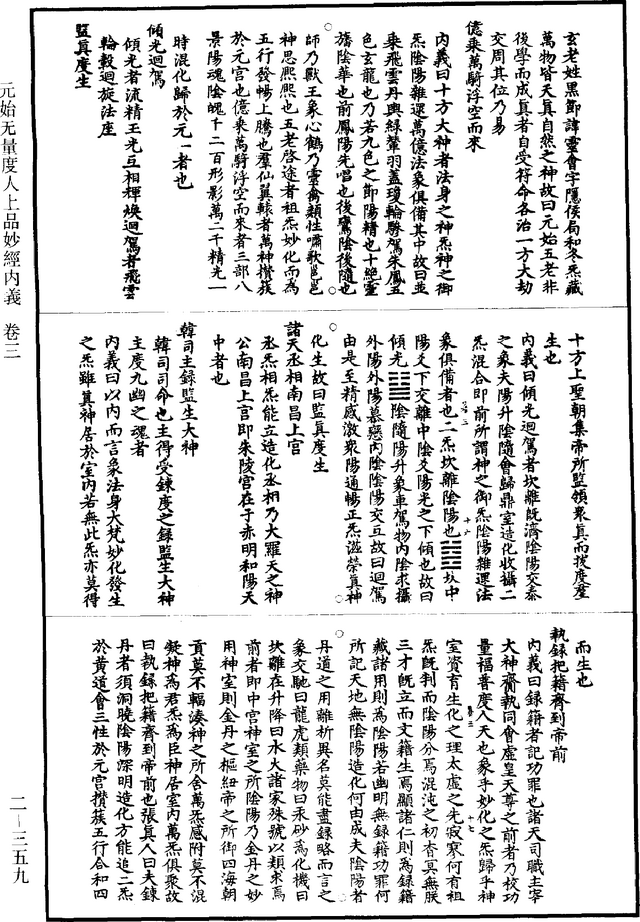 玄老姓黑節諱靈會字隱侯局和冬炁藏
萬物皆天真自然之神故曰元始五老非
後學而成真者自受符命各治一方大劫
交周其位乃易
億乘萬騎浮空而來
內義曰十方大神者法身之神炁神之御
炁陰陽雜還萬億法象俱備其中故曰並
乘飛雲丹輿綠輦羽蓋瓊輪驂駕朱鳳五
色玄龍也乃若九色之節陽精也十絕靈
旛陰華也前鳳陽先唱也後鸞陰後隨也
師乃獸王象心鶴乃靈禽類性嘯歌邕邕
神思熙熙也五老啓途者祖炁妙化而為
五行發暢上騰也羣仙翼轅者萬神攢蔟
於元宮也億乘萬騎浮空而來者三部八
景陽魂陰魄千二百形影萬二千精光一
時混化歸於元一者也
傾光迴駕
傾光者流精玉光互相輝煥迴駕者飛雲
輪轂迴旋法座
監真度生
十方上聖朝集帝所監領衆真而拔度羣
生也
內義曰傾光迴駕者坎離既濟陰陽交泰
之象夫陽升陰隨會歸鼎室造化收攝二
炁混合即前所謂神之御炁陰陽雜還法
象俱備者也二炁坎離陰陽也䷜坎中
陽爻下交離中陰爻陽光之下傾也故曰
傾光䷝陰隨陽升象車駕物內陰求攝
外陽外陽慕戀內陰陰陽交互故曰迴駕
由是至精感激衆陽通暢正炁滋榮真神
化生故曰監真度生
諸天丞相南昌上宮
丞炁相炁能立造化丞相乃大羅天之神
公南昌上宮即朱陵宮在于赤明和陽天
中者也
韓司主錄監生大神
韓司司命也主得受錬度之錄監生大神
主度九幽之魂者
內義曰以內而言象法身大梵妙化發生
之炁雖真神居於室內若無此炁亦莫得
而生也
執錄把籍齎到帝前
內義曰録籍者記功罪也諸天司職主宰
大神齎執同會虛皇天尊之前者乃校功
量福普度人天也象乎妙化之炁歸乎神
室資育生化之理太虛之先寂寥何有祖
炁既判而陰陽分焉混沌之初杳冥無朕
三才既立而文籍生焉顯諸仁則為錄籍
藏諸用則為陰陽若幽明無錄籍功罪何
所記天地無陰陽造化何由成夫陰陽者
丹道之用離析異名莫能盡録略而言之
象交馳曰龍虎類藥物曰汞砂為化機曰
坎離在升降曰水火諸家殊號以類求焉
前者即中宮神室之所陰陽乃金丹之妙
用神室則金丹之樞紐帝之所御四海朝
貢莫不輻湊神之所舍萬炁感附莫不混
凝神為君炁為臣神居室內萬炁俱聚故
曰執録把籍齎到帝前也張真人曰夫錬
丹者須洞曉陰陽深明造化方能追二炁
於黃道會三性於元宮攢蔟五行合和四
元始无量度人上品妙經內義 卷三
二－三五九